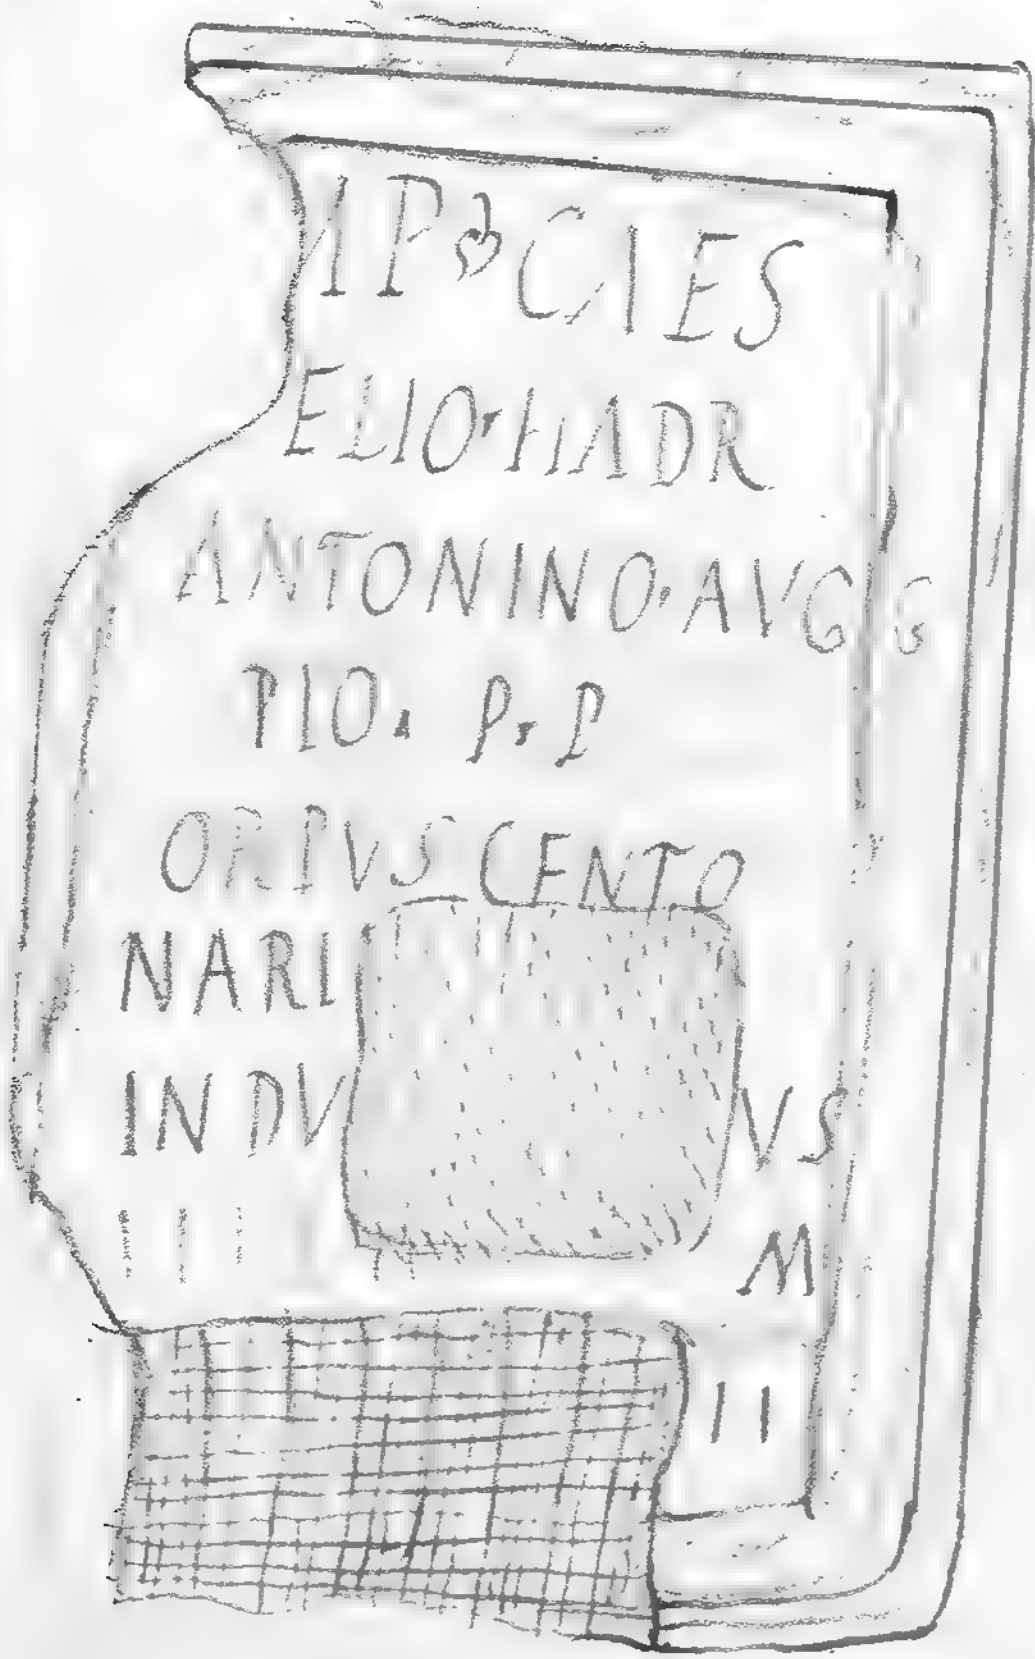 P CAES
ELIO·HADR
ANTONINO·AVG G
PIO· P·P
ORPVS CENTO
NARI
INDV VS
I I I M
I I